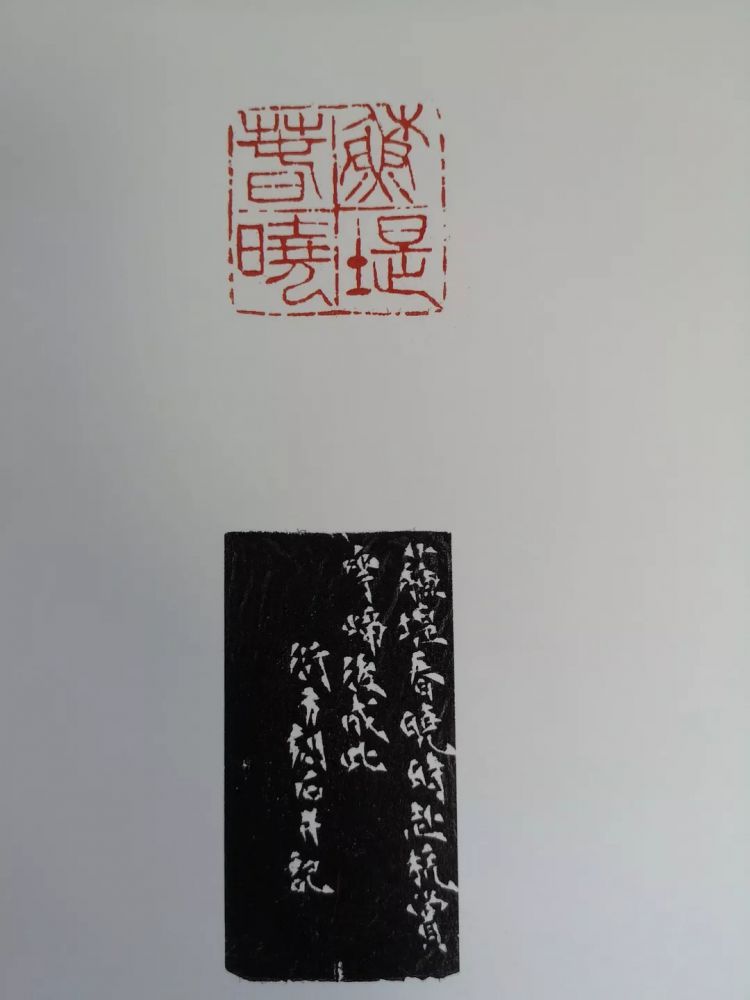 蘇堤
春曉
蘇堤春曉時赴杭賞
歸後成此
衍方刻石并記